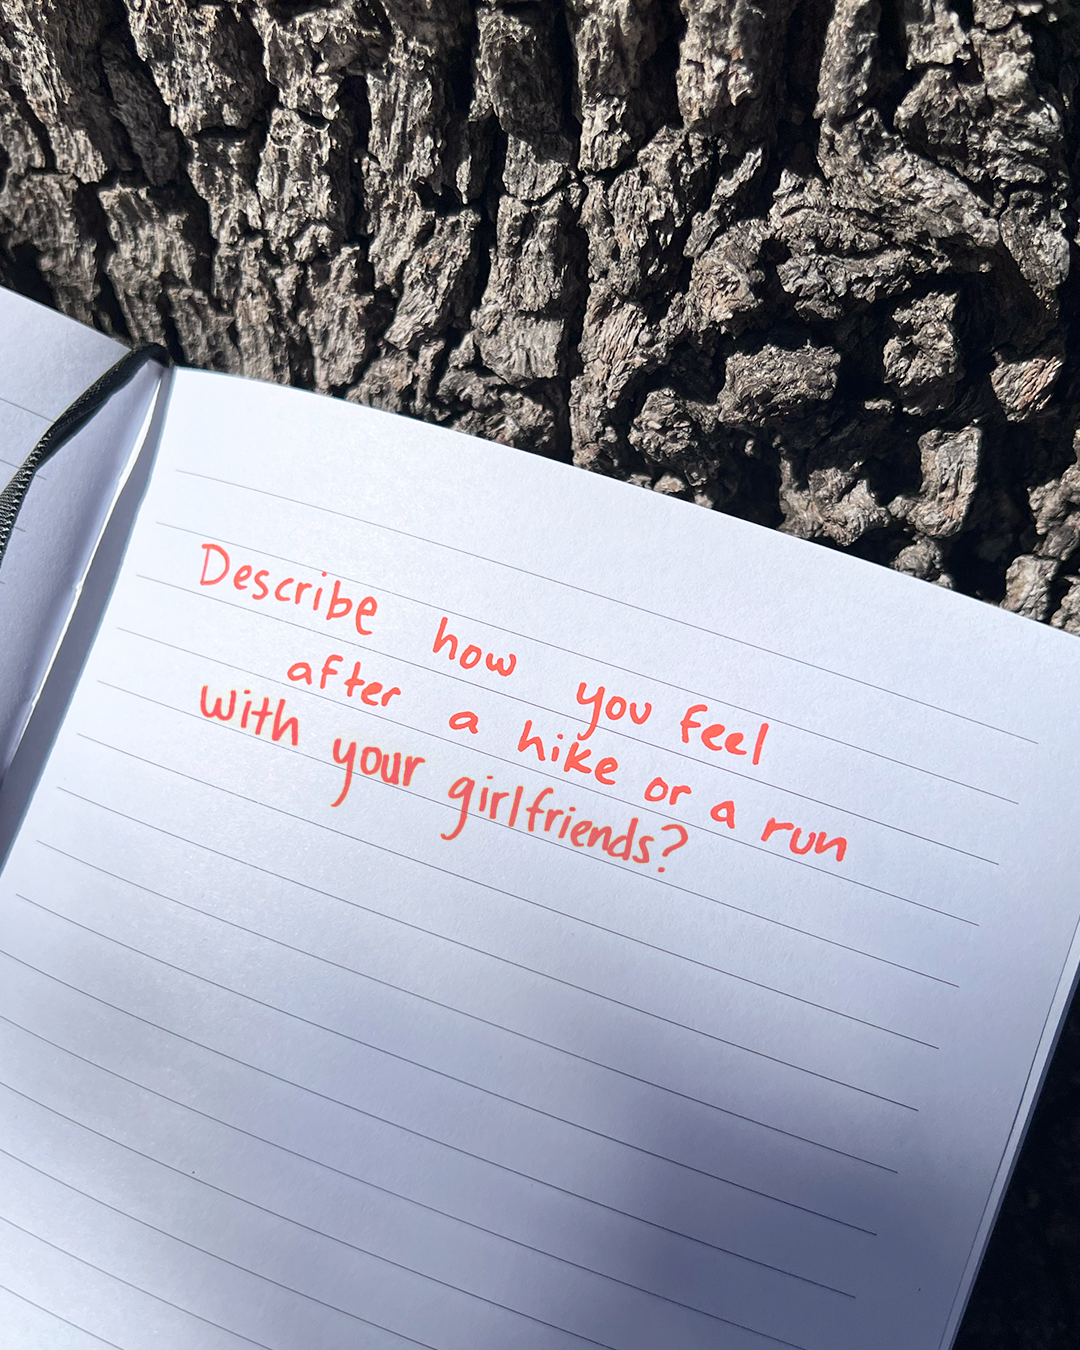 Describe how you feel
after a hike or a run
with your girlfriends?